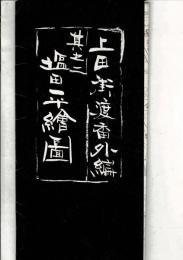 上田市渡番外編
其之二
塩田平繪圖